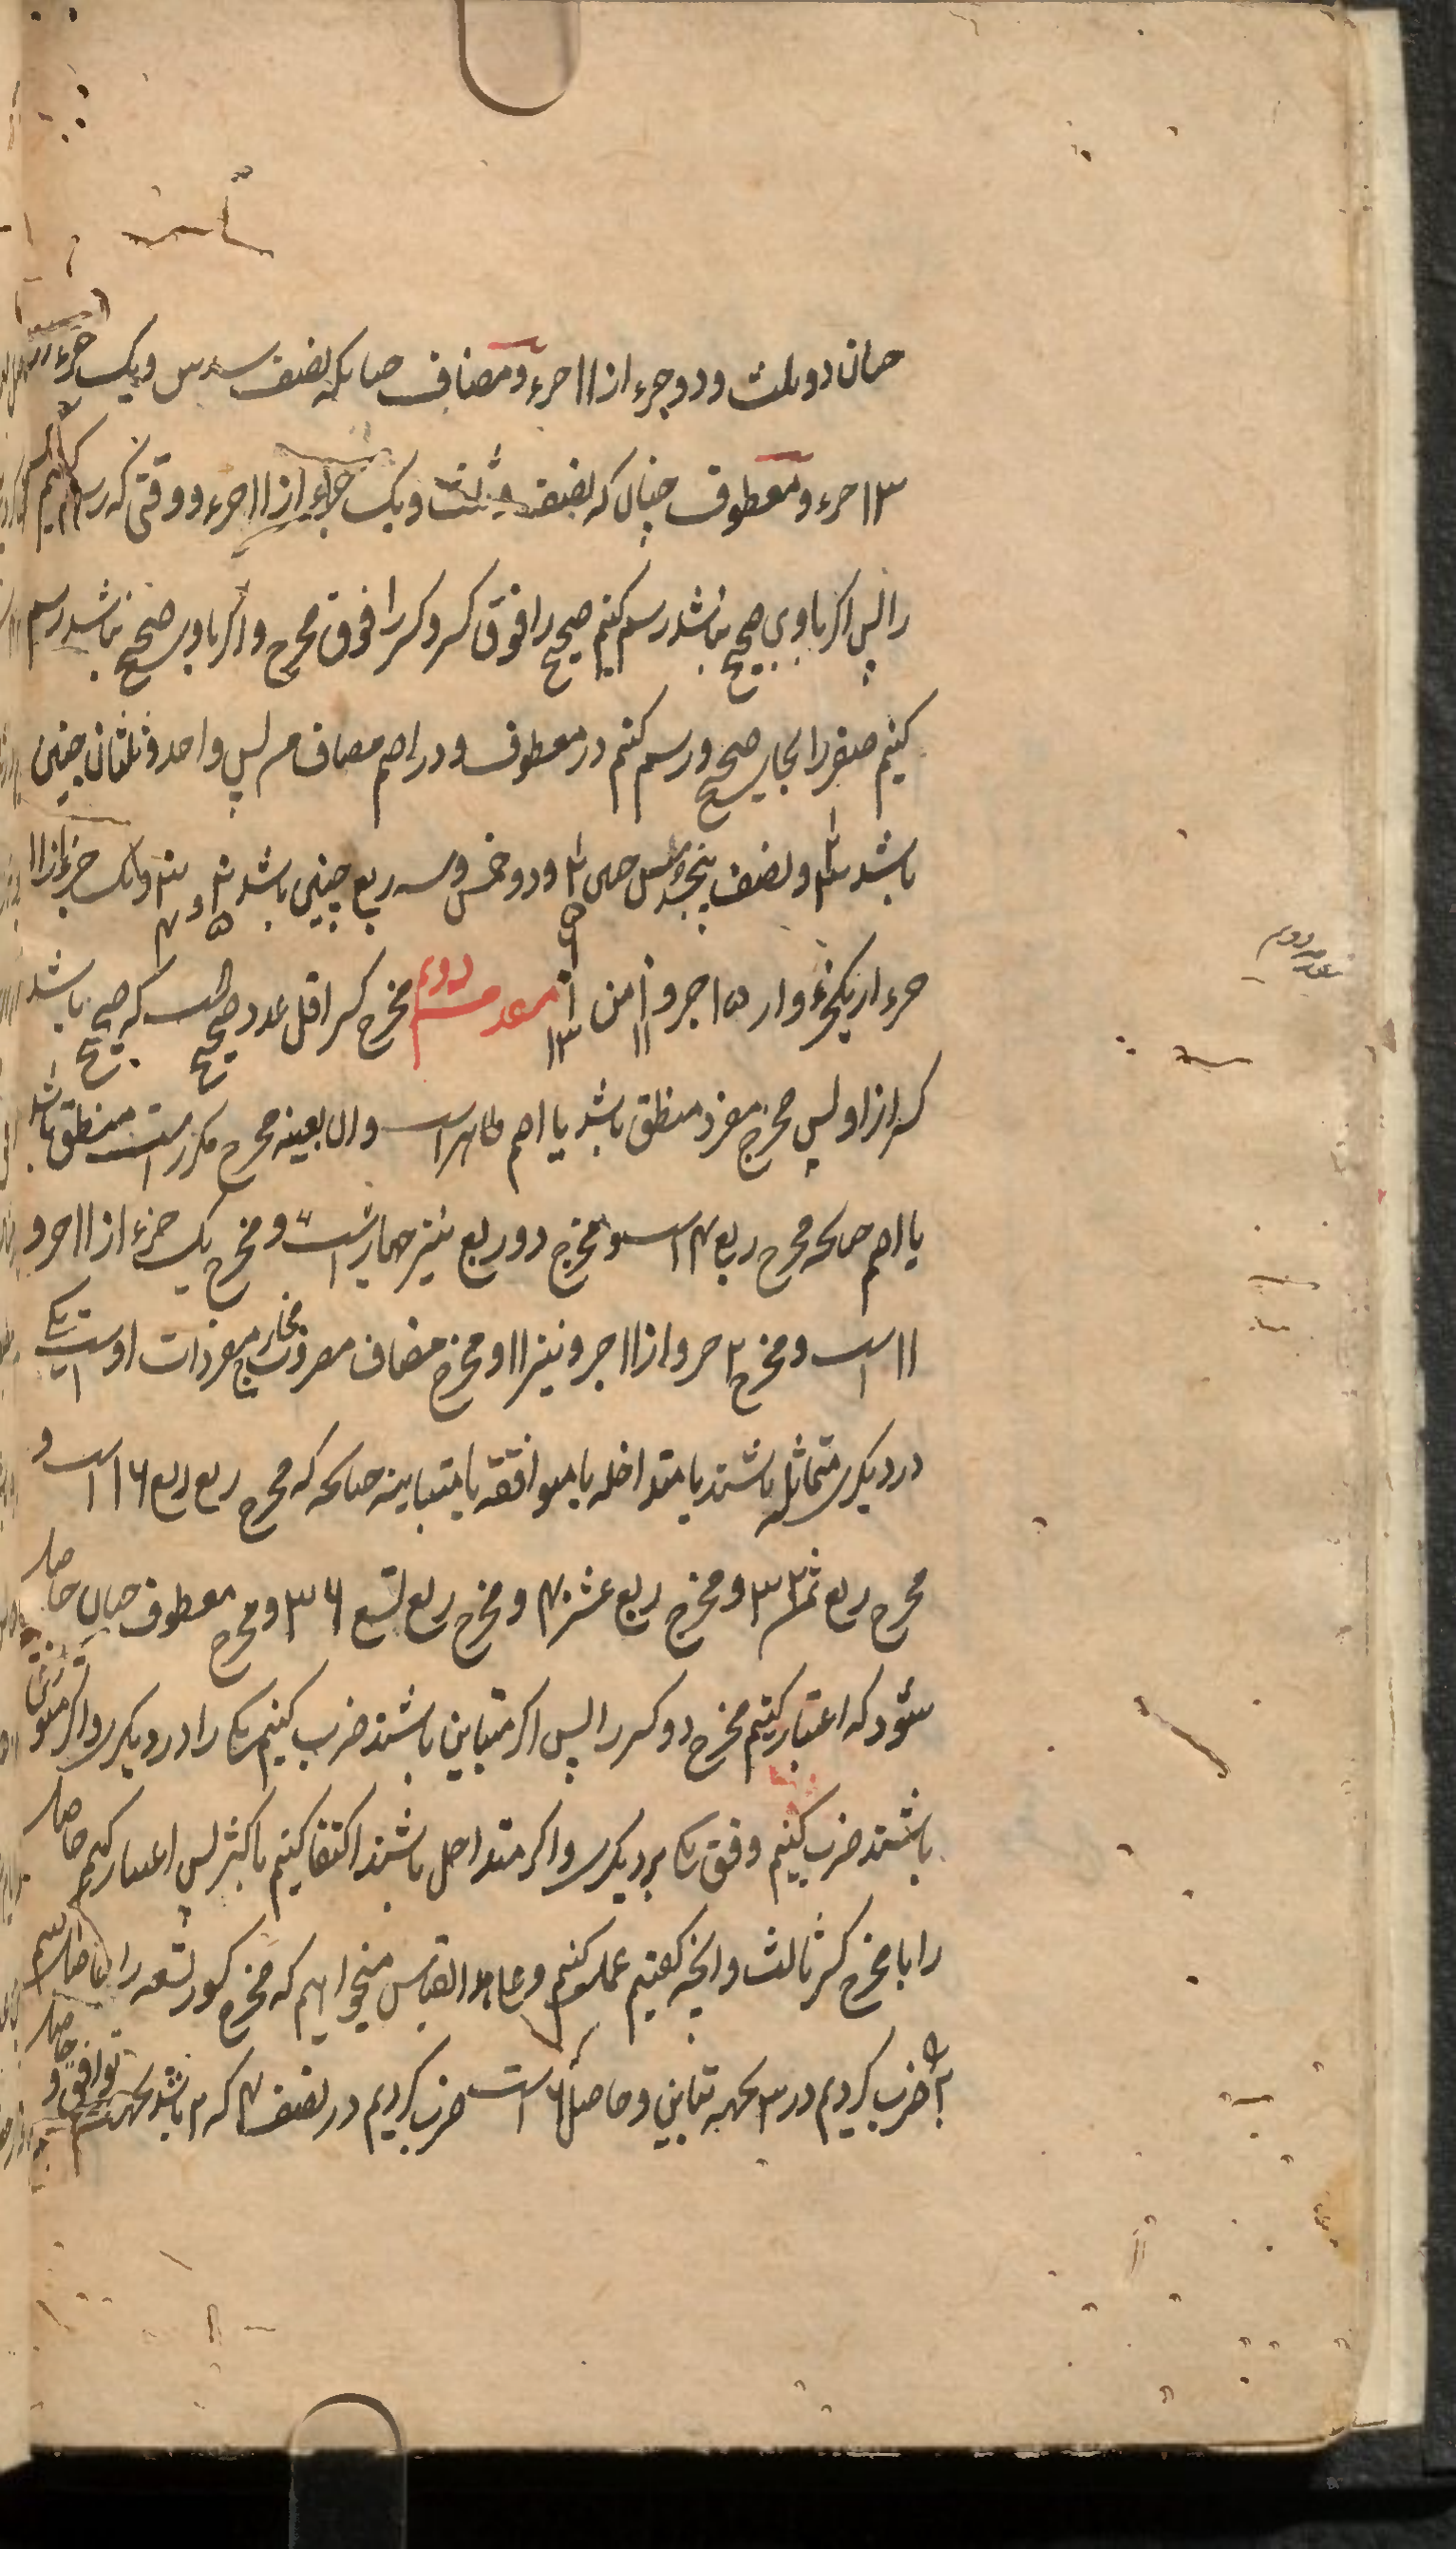 چنان دو ثلث و دو جزء از ۱۱ جزء و مضاف چنانکه نصف سدس و یک جزء از
۱۳ جزء و معطوف چنان که نصف و ثلث و یک جزء از ۱۱ جزء و وقتی که رسم کنیم کسر
را پس اکر با وی صحیح باشد رسم کنیم صحیح را فوق کسر و کسر را فوق مخرج و اکر با وی صحیح نباشد رسم
کنیم صفر را بجای صحیح و رسم کنیم در معطوف و در اصم مضاف من پس واحد و ثلثان چنین
باشد و نصف پنج سدس چنین و دو خمس و سه ربع چنین باشد و یک جزء از ۱۱
جزء از یکجزء از ۱۳ جزو ۱ ۱۱ من ۱ ۱۳ مقدمه دویم مخرج کسر اقل عدد صحیح است که صحیح باشد
کسر از او پس مخرج مفرد منطق باشد یا اصم ظاهر است و ان بعینه مخرج مکرر است منطق باشد
یا اصم چنانکه مخرج ربع ۴ است و مخرج دو ربع نیز چهار است و مخرج یک جزء از ۱۱ جزو
۱۱ است و مخرج ۲ جزو از ۱۱ جزو نیز ۱۱ و مخرج مضاف مضروب مخارج مفردات اوست یکی
در دیکری متماثله باشند یا متداخله یا متوافقه یا متباینه چنانکه مخرج ربع ربع ۱۶ است و
مخرج ربع ثمن ۳۲ و مخرج ربع عشر ۴۰ و مخرج ربع تسع ۳۶ و مخرج معطوف چنان حاصل
شود که اعتبار کنیم مخرج دو کسر را پس اکر متباین باشند ضرب کنیم یکی را در دیکری و اکر متوافق
باشند ضرب کنیم وفق یکی بر دیکری و اکر متداخل باشند اکتفا کنیم با کثر پس اعتبار کنیم حاصل
را با مخرج کسر ثالث و انچه کفتیم عمل کنیم و علی هذا القیاس میخواهیم که مخرج کسور تسعه را حاصل کنیم
۲ ضرب کردیم در ۳ بجهه تباین و حاصل ۶ است ضرب کردیم در نصف ۴ که ۲ باشد بجهه توافق و حاصل
مقدمه دویم